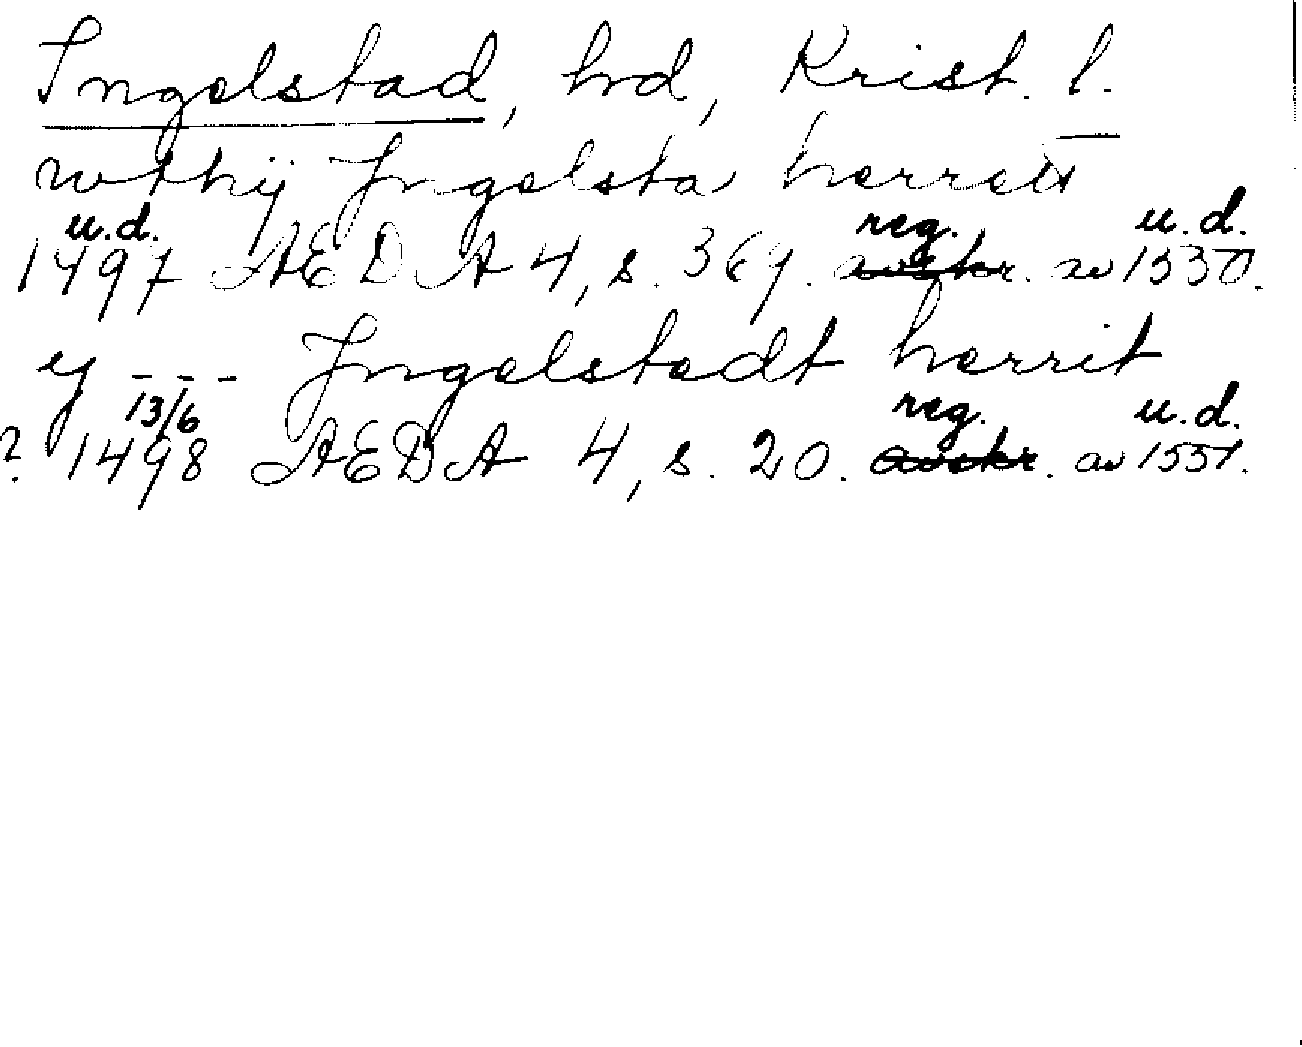 Ingelstad, hd, Krist. l.
wthij Jngelsta herrett
u.d. reg. u.d.
1497 ÆDA 4, s. 369. avskr. av 1530.
y --- Jngelstadt herrit
13/6 reg. u.d.
?. 1498 ÆDA 4, s. 20. avskr. av 1551.